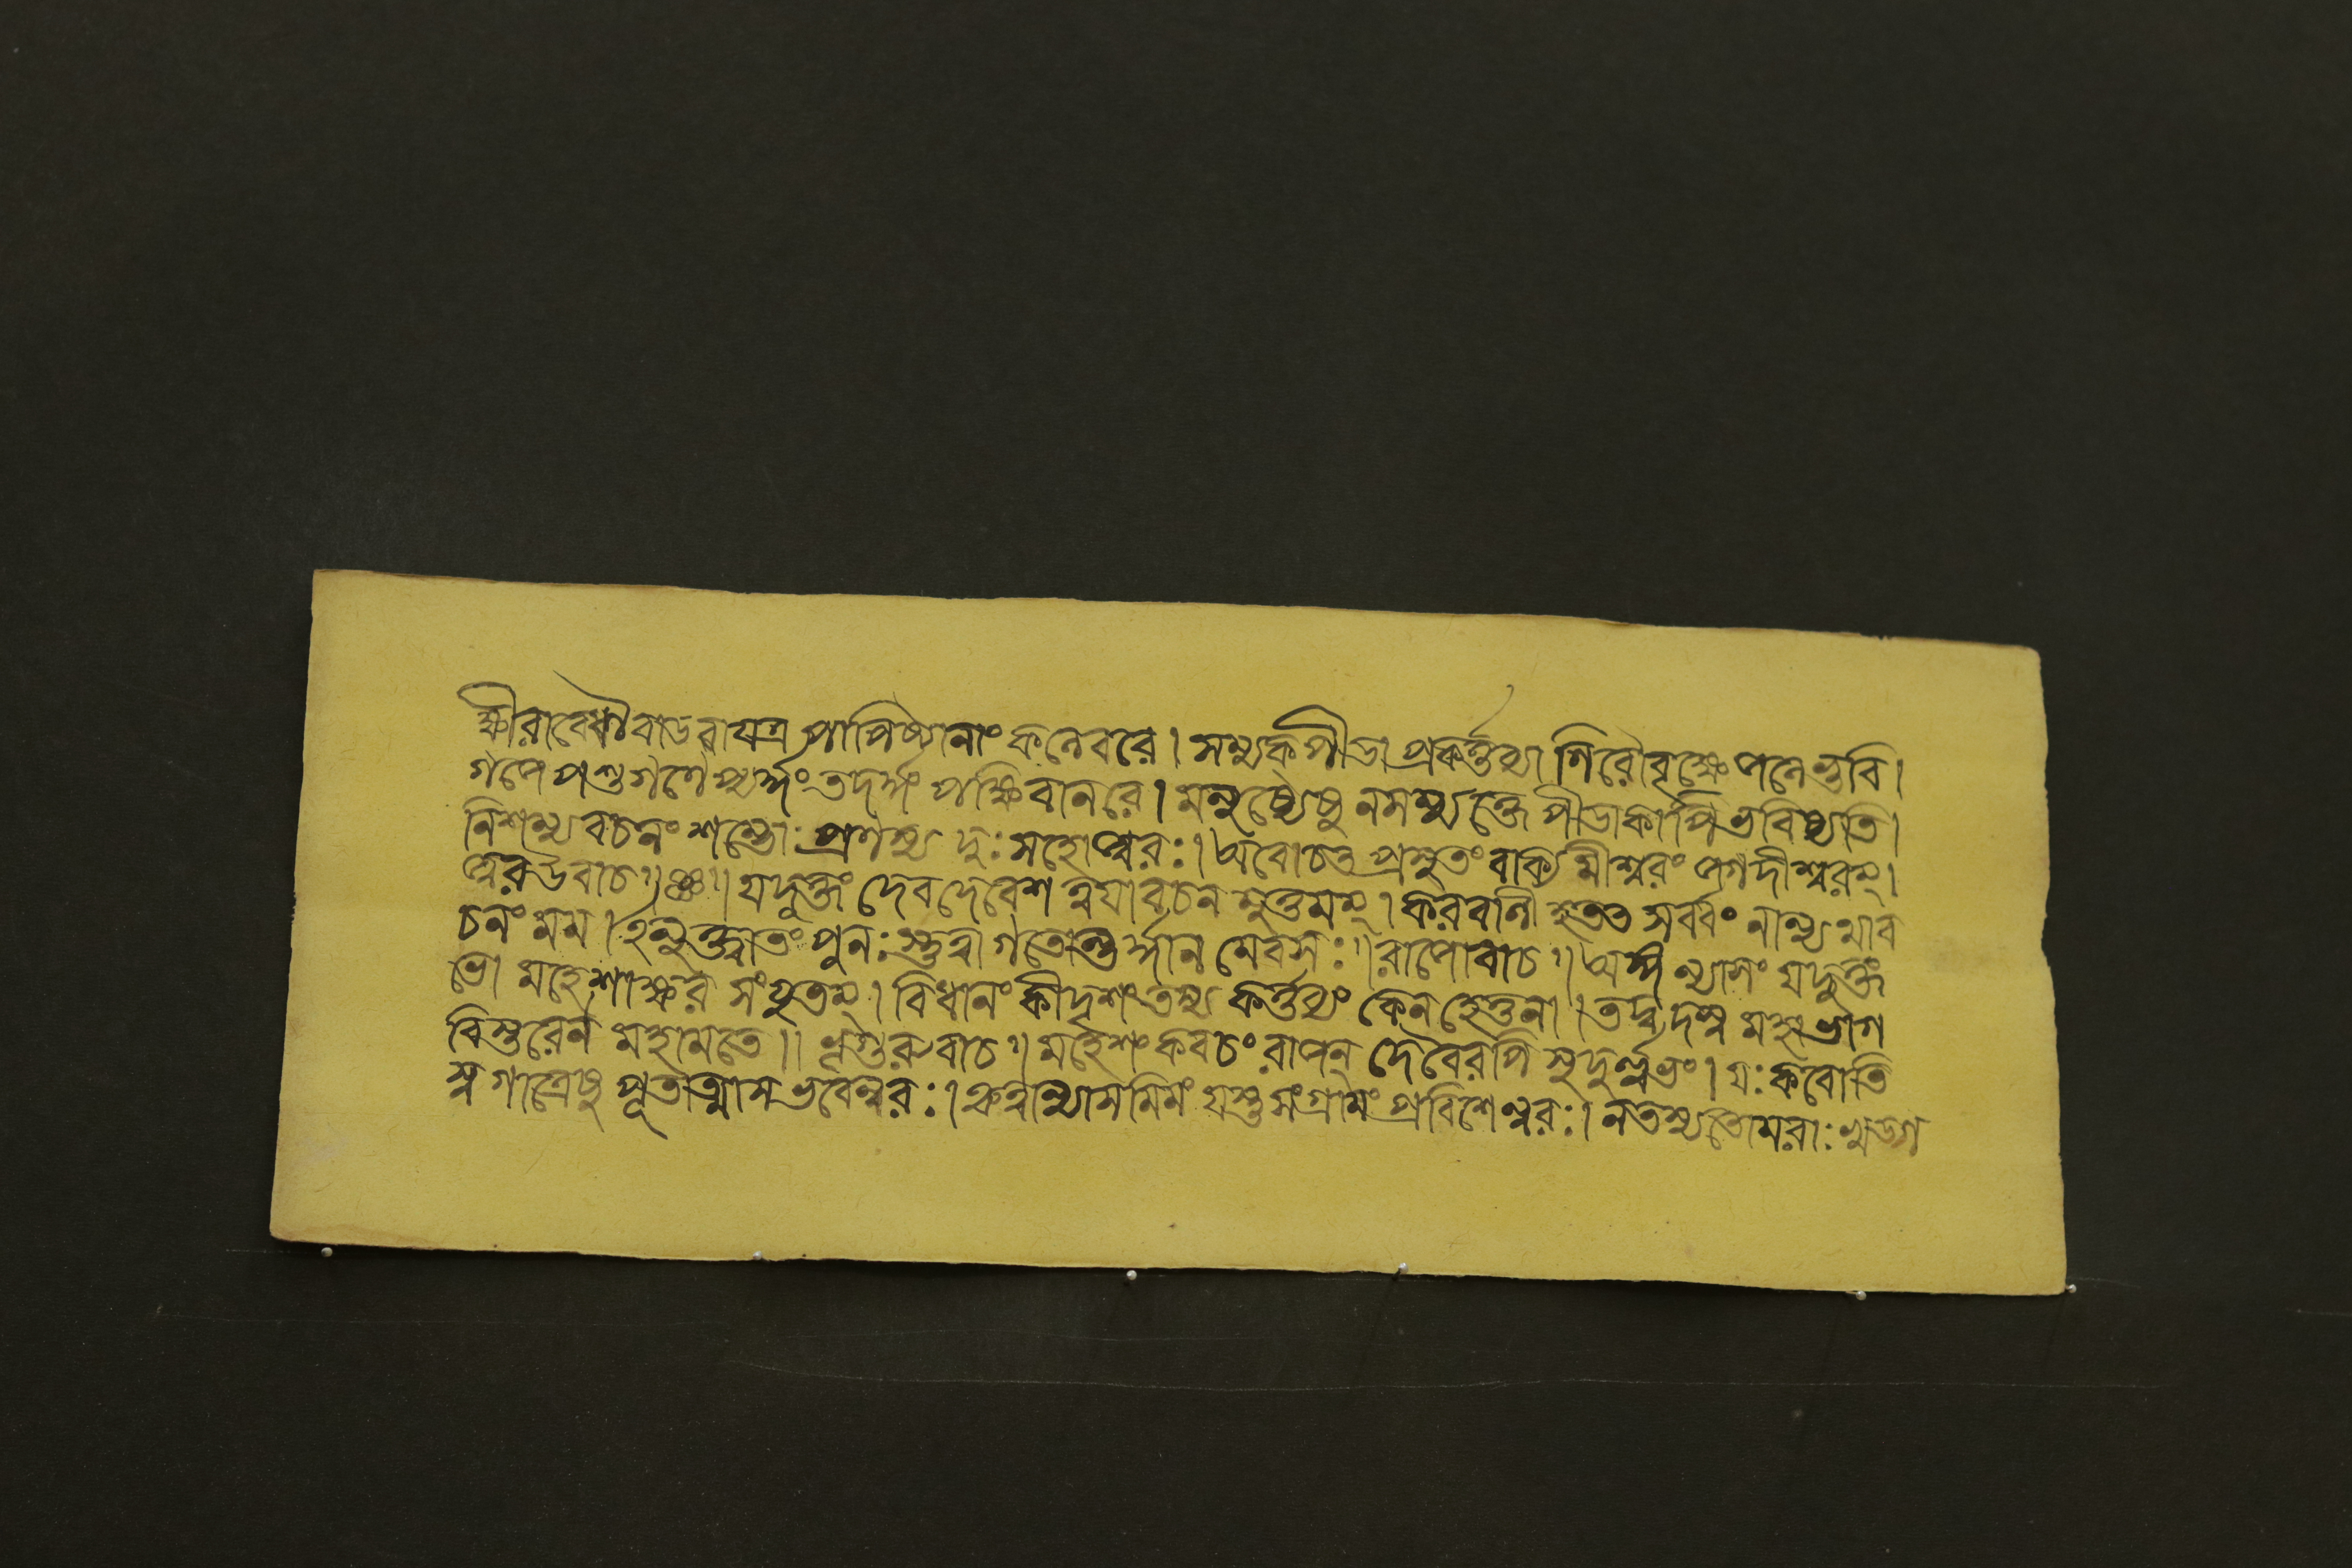 ক্ষীরাবেধৌ বাডবা যত্র পাপিষ্ঠানাং কলেবরে। সম্যক পীডা প্রকর্ত্তব্যা গিরৌ বৃক্ষে জলে ভুবি।
গজে পশুগণে প্যর্দ্ধং তদর্দ্ধং পক্ষি বানরে। মনুষ্যেষু নসম্যঙ্মে পীডাকাপি ভবিষ্যতি।
নিশম্য বচনং শম্ভোঃ প্রণম্য দুঃসহো জ্বরঃ। অবোচত প্রস্নুতং বাক্য মীশ্বরং জগদীশ্বরম্।
জ্বর উবাচ॥ যদুক্তং দেবদেবেশ ত্বযা বচন মুত্তমম্। করবাণী হ তত সর্ব্বং নান্যথা ব
চনং মম। ইত্যুক্ত্বাতং পুনঃ স্তুত্বা গতোন্তর্দ্ধান মেবসঃ॥ রাজোবাচ॥ অঙ্গ ন্যাসং যদুক্তং
ভো মহেশাক্ষর সংযুতম্। বিধানং কীদৃশং তস্য কর্ত্তব্যং কেন হেতুনা। তদ্বদস্ব মহাভাগ
বিস্তরেন মহামতে॥ ভৃগুরুবাচ॥ মহেশং কবচং রাজন্ দেবৈরপি সুদুর্ল্লভং। যঃ করোতি
স্বগাত্রেষু পূতাত্মাস ভবেন্নরঃ। কৃত্বান্যাস মিমং যস্তু সংগ্রামং প্রবিশেন্নরঃ। নতস্য তোমরাঃ খড্গ